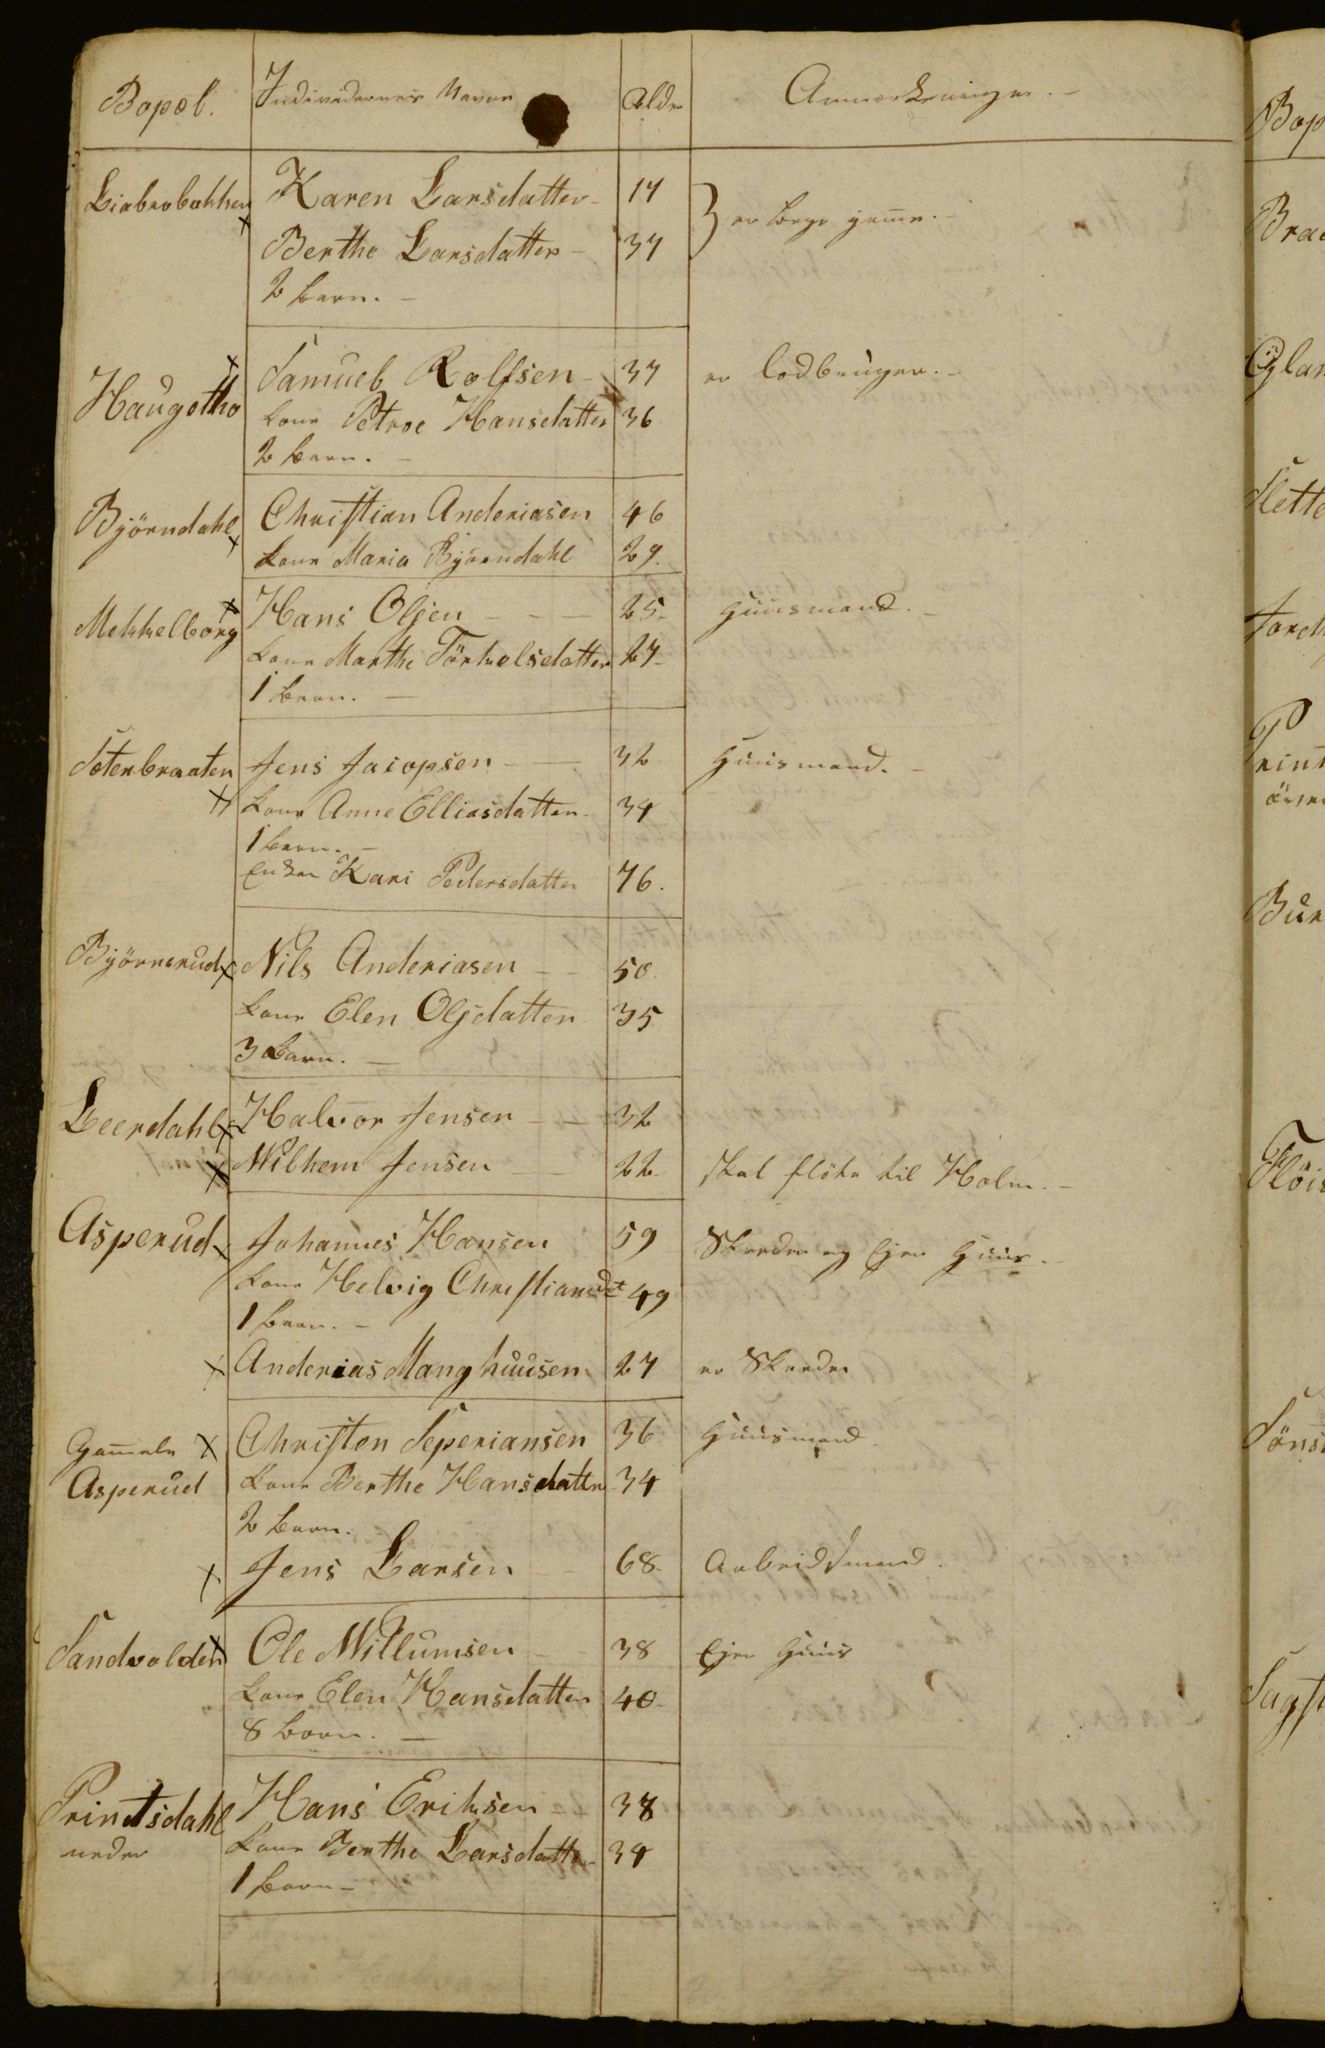 Bopæl. Individernes Navne Alder Anmærkninger.-
Liabrobakken Karen Larsdatter - 17
Berthe Larsdatter - 37 } er begr
2 barn. -
Haugotho Samuel Rolfsen - 37 er lodbruger. -
kone Petroe Hansdatter 36
2 barn. -
Björndahl Christian Anderiasen 46
kone Maria Björndahl 29.
Mekkelborg Hans Olsen - - - 25 - Huusmand. -
kone Marthe Törkelsdatter 27 -
1 barn. -
Sotenbraaten Jens Jacopsen - - 32 Huusmand. -
kone Anne Elliasdatter - 34
1 barn. -
Enken Kari Pedersdatter 76.
Björnerud Nils Anderiasen - - 50.
kone Elen Olsdatter 35
3 barn. -
Leerdahl Halvor Jensen - - 32
Wilhem Jensen - 22. skal flötte til Holm. -
Asperud Johannes Hansen 59 Skredder og Ejer Huus. -
kone Helvig Christiansdt 49
1 barn. -
Anderias Manghuusen 27 er Skredder
Gamele Christen Seperiansen 36 Huusmand
Asperud kone Berthe Hansdatter 34
2 barn.
Jens Larsen - 68. Arbeidsmand.
Sandvolden Ole Willumsen - - 38 Ejer Huus
kone Elen Hansdatter 40 -
8 born. -
Printsdahl Hans Eriksen 38
neder kone Berthe Larsdatter 34
1 barn -
Bop
Sönst